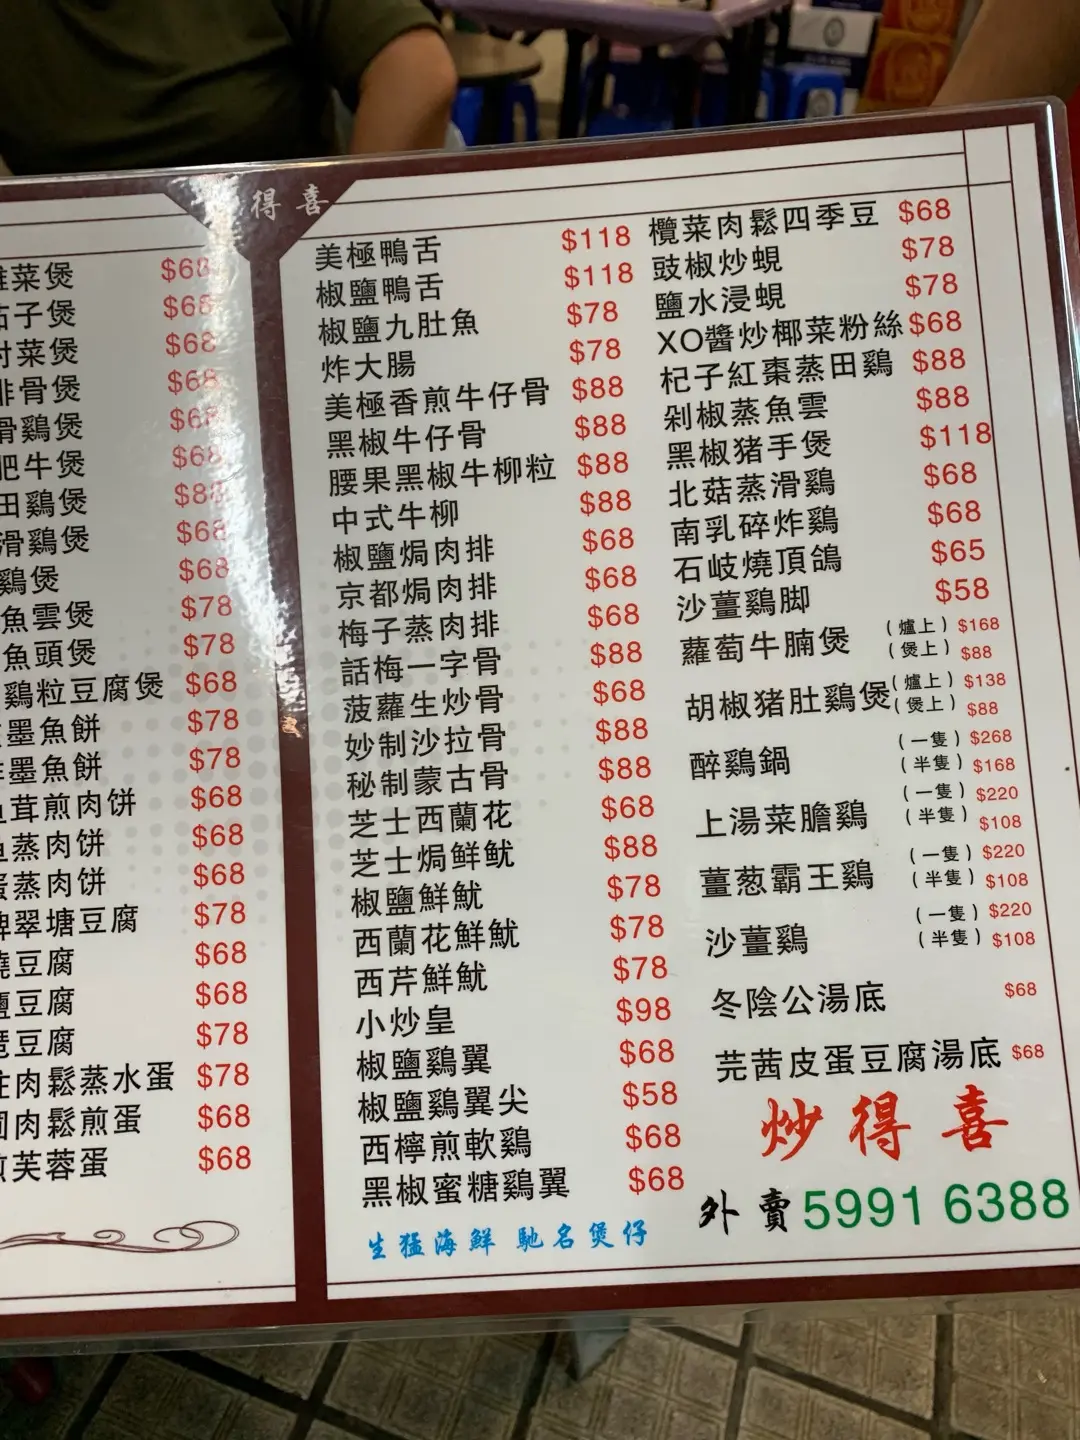 得喜
菜煲 $68
茄子煲 $68
菜煲 $68
排骨煲 $68
骨鷄煲 $68
肥牛煲 $68
田鷄煲 $88
滑鷄煲 $68
鷄煲 $68
魚雲煲 $78
魚頭煲 $78
鷄粒豆腐煲 $68
墨魚餅 $78
墨魚餅 $78
茸煎肉饼 $68
蒸肉饼 $68
蒸肉饼 $68
翠塘豆腐 $78
豆腐 $68
鹽豆腐 $68
豆腐 $78
肉鬆蒸水蛋 $78
肉鬆煎蛋 $68
芙蓉蛋 $68
美極鴨舌 $118
椒鹽鴨舌 $118
椒鹽九肚魚 $78
炸大腸 $78
美極香煎牛仔骨 $88
黑椒牛仔骨 $88
腰果黑椒牛柳粒 $88
中式牛柳 $88
椒鹽焗肉排 $68
京都焗肉排 $68
梅子蒸肉排 $68
話梅一字骨 $88
菠蘿生炒骨 $68
妙制沙拉骨 $88
秘制蒙古骨 $88
芝士西蘭花 $68
芝士焗鮮魷 $88
椒鹽鮮魷 $78
西蘭花鮮魷 $78
西芹鮮魷 $78
小炒皇 $98
椒鹽鷄翼 $68
椒鹽鷄翼尖 $58
西檸煎軟鷄 $68
黑椒蜜糖鷄翼 $68
生猛海鮮 馳名煲仔
欖菜肉鬆四季豆 $68
豉椒炒蜆 $78
鹽水浸蜆 $78
XO醬炒椰菜粉絲 $68
杞子紅棗蒸田鷄 $88
剁椒蒸魚雲 $88
黑椒猪手煲 $118
北菇蒸滑鷄 $68
南乳碎炸鷄 $68
石岐燒頂鴿 $65
沙薑鷄脚 $58
蘿蔔牛腩煲 (爐上) $168
(煲上) $88
胡椒猪肚鷄煲 (爐上) $138
(煲上) $88
醉鷄鍋 (一隻) $268
(半隻) $168
上湯菜膽鷄 (一隻) $220
(半隻) $108
薑葱霸王鷄 (一隻) $220
(半隻) $108
沙薑鷄 (一隻) $220
(半隻) $108
冬陰公湯底 $68
芫茜皮蛋豆腐湯底 $68
炒得喜
外賣 5991 6388